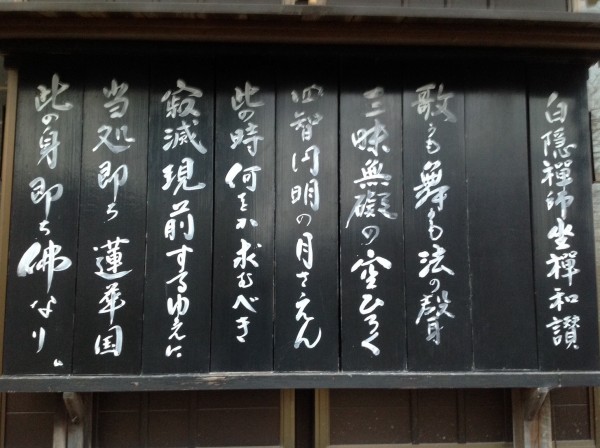 白隠禅師坐禅和讃
歌うも舞うも法の聲
三昧無礙の空ひろく
四智円明の月さえん
此の時何をか求むべき
寂滅現前するゆえに
当処即ち蓮華国
此の身即ち佛なり。